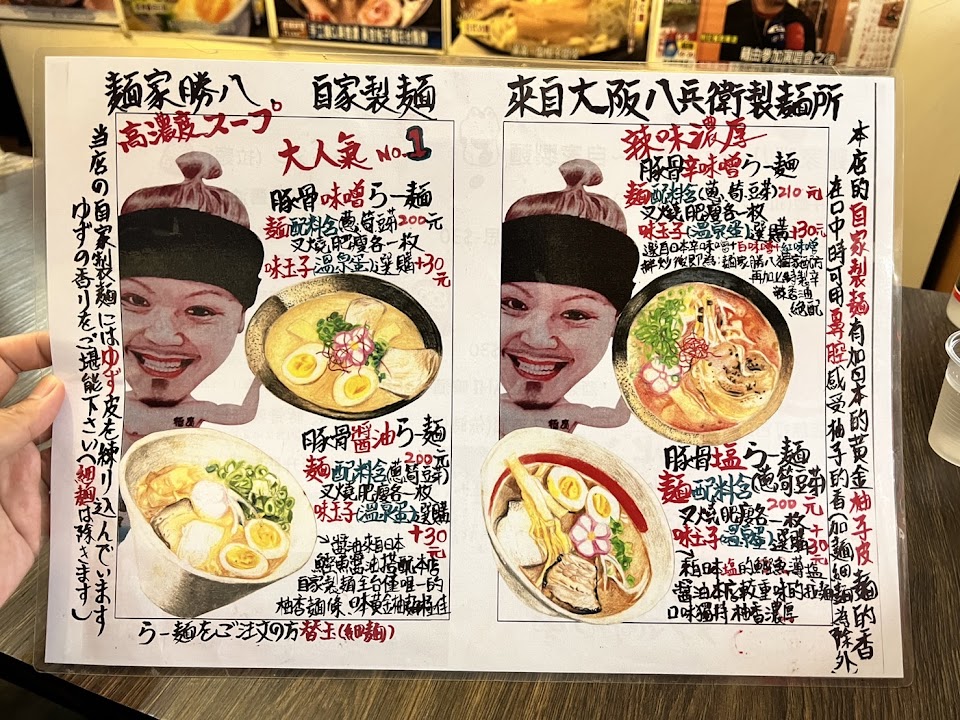 麵家勝八。
自家製麵
來自大阪八兵衛製麵所
高濃度スープ
大人氣 No.1
豚骨味噌らー麵
麵配料含(蔥筍豆芽)200元
叉燒肥瘦各一枚
味玉子(溫泉蛋)選購+30元
豚骨醬油らー麵
200元
麵配料含(蔥筍豆芽)
叉燒肥瘦各一枚
味玉子(溫泉蛋)選購
+30元
醬油來自日本
鰹魚醬油搭配本店
自家製麵全台僅唯一的
柚香麵條
らー麵をご注文の方替玉(細麵)
当店の自家製麵にはゆず皮を練り込んでいます
ゆずの香りをご堪能下さい(細麵は除きます)
辣味濃厚
豚骨辛味噌らー麵
麵配料含(蔥筍豆芽)210元
叉燒肥瘦各一枚
味玉子(溫泉蛋)選購+30元
選自日本辛味噌+白味噌+紅味噌
拌炒後即為麵家勝八獨家配方
再加以特製辛
辣香油
絕配
豚骨塩らー麵
麵配料含(蔥筍豆芽)
200元
叉燒肥瘦各一枚
味玉子(溫泉蛋)選購
+30元
醬油本店較重味的
口味獨特柚香濃厚
本店的自家製麵有加日本的黃金柚子皮
在口中時可用鼻腔感受柚子的香加麵
麵的香
細麵為除外